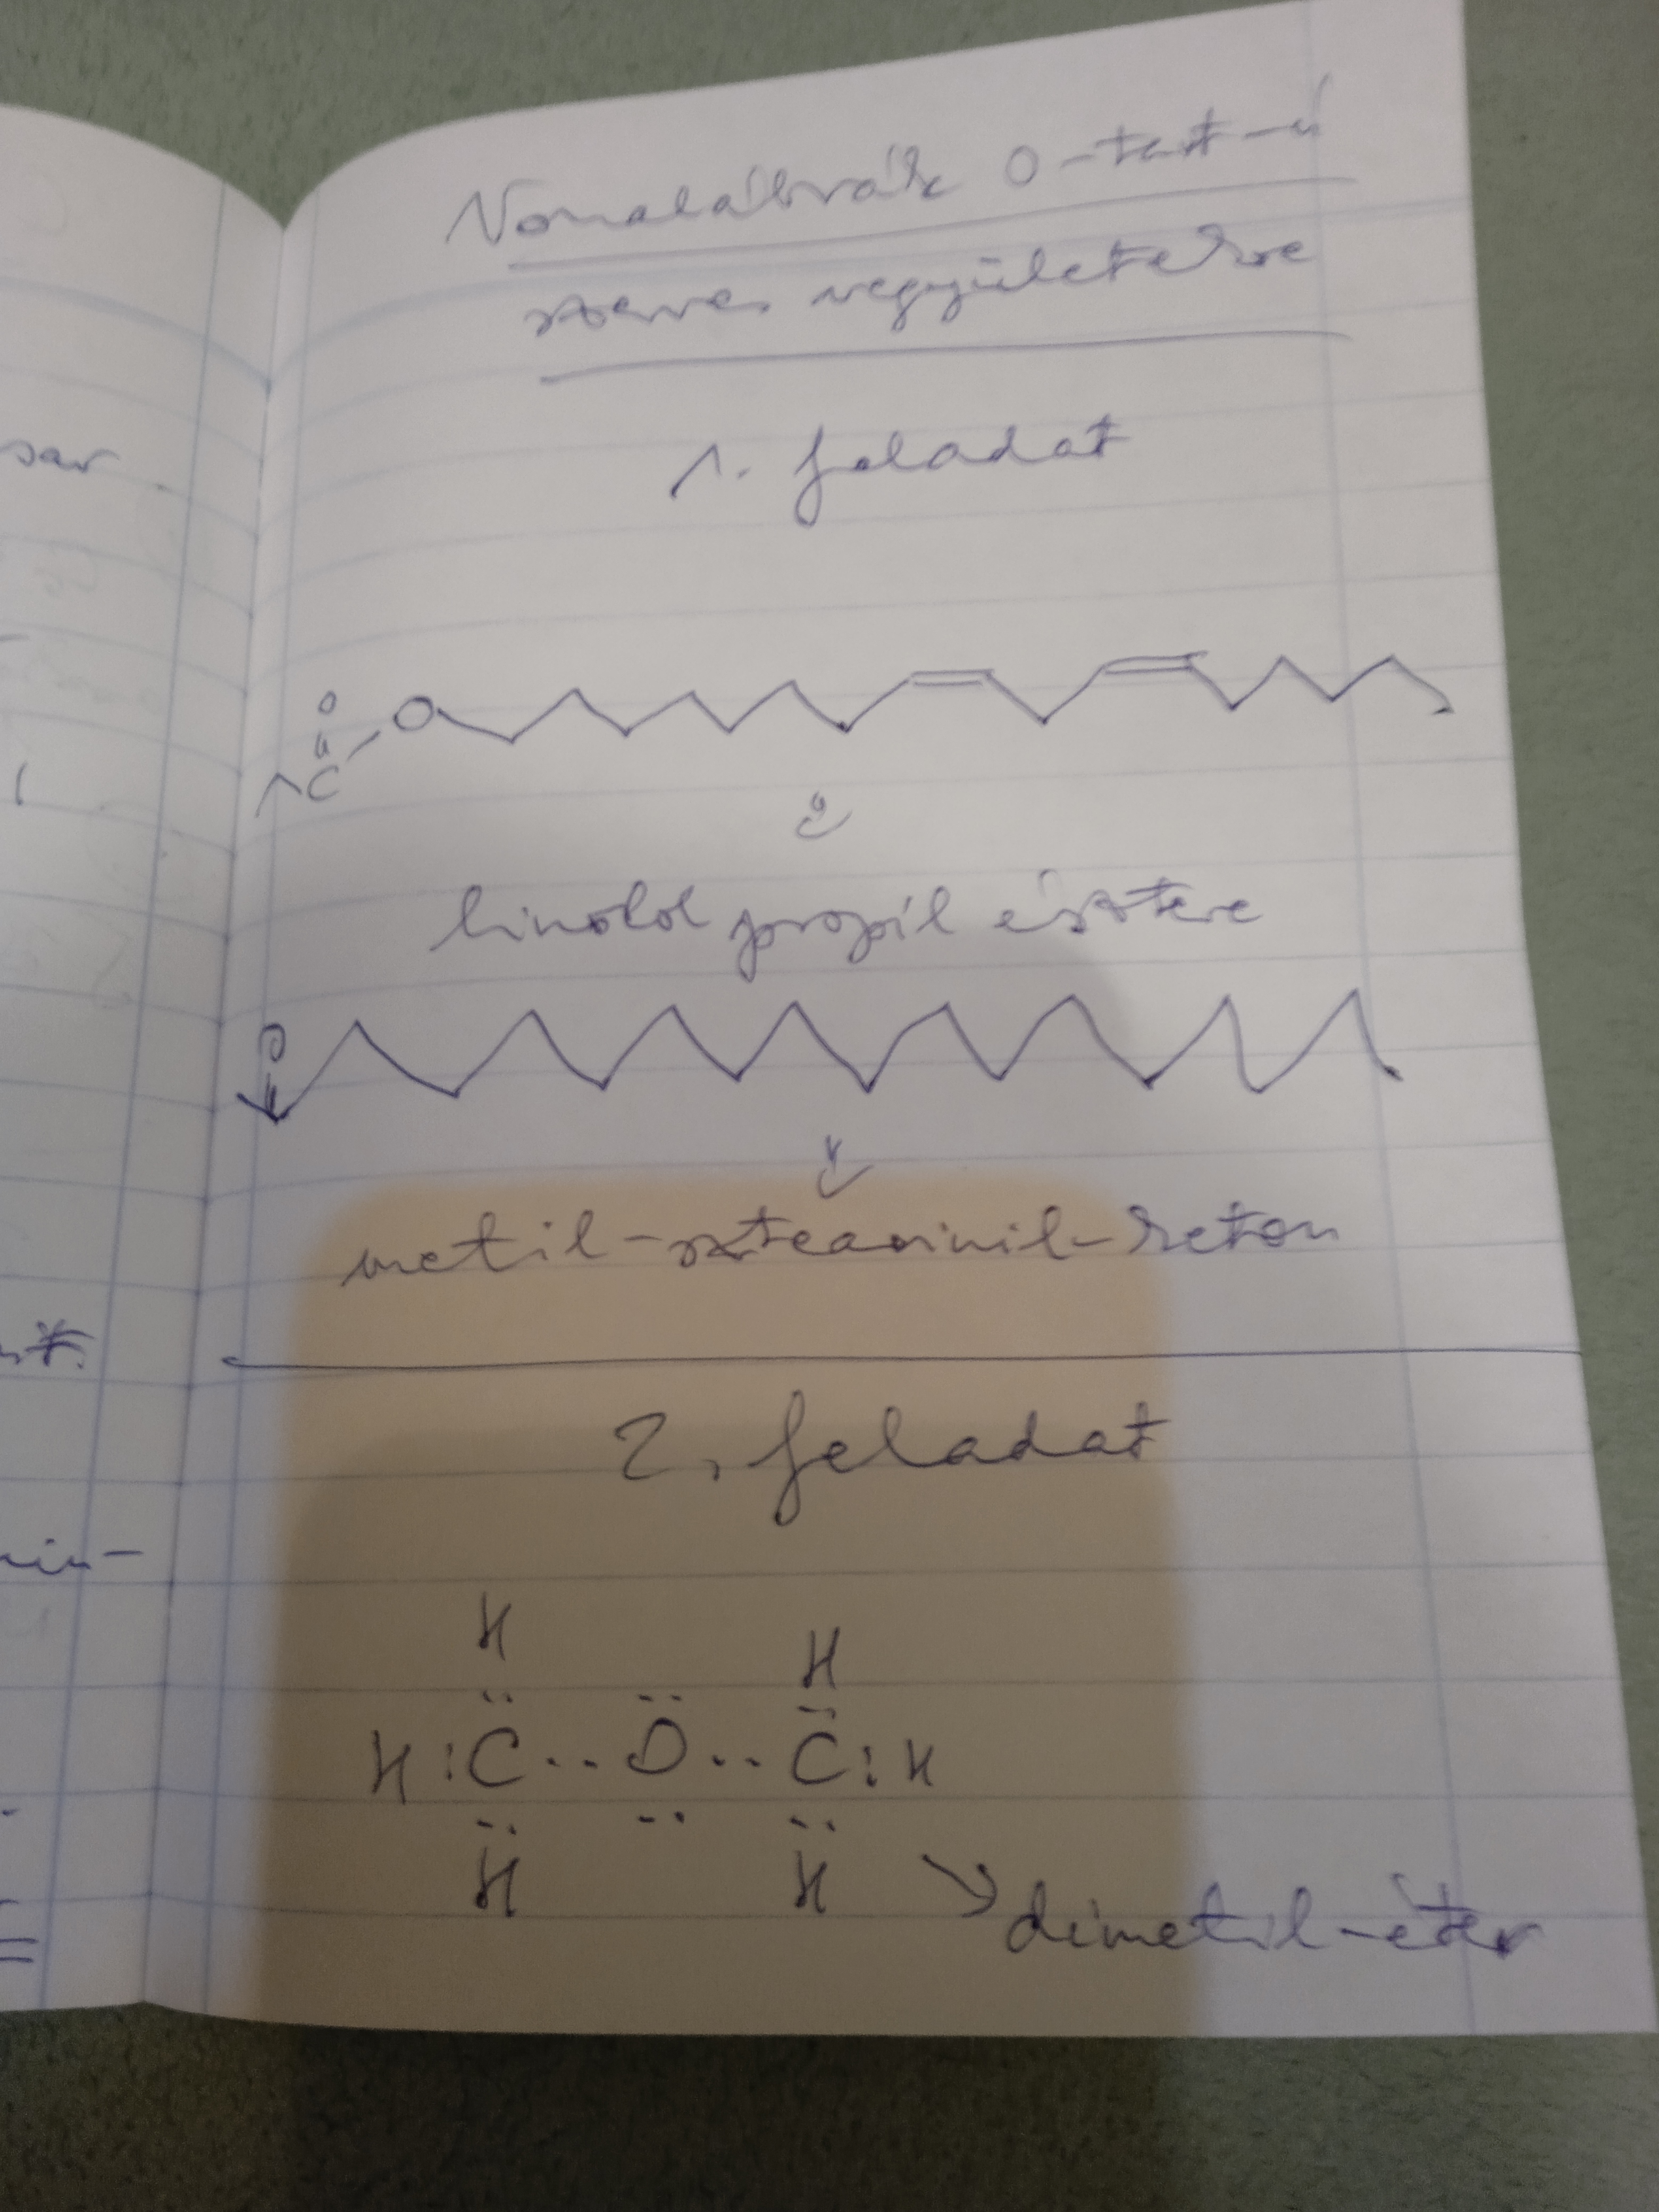 Vonalábrák O-tart-ú
szerves vegyületekre
1. feladat
O
C
O
linolol propil észtere
O
metil-sztearinil-keton
2, feladat
H H
H : C .. O .. C : H
H H
dimetil-éter
sar